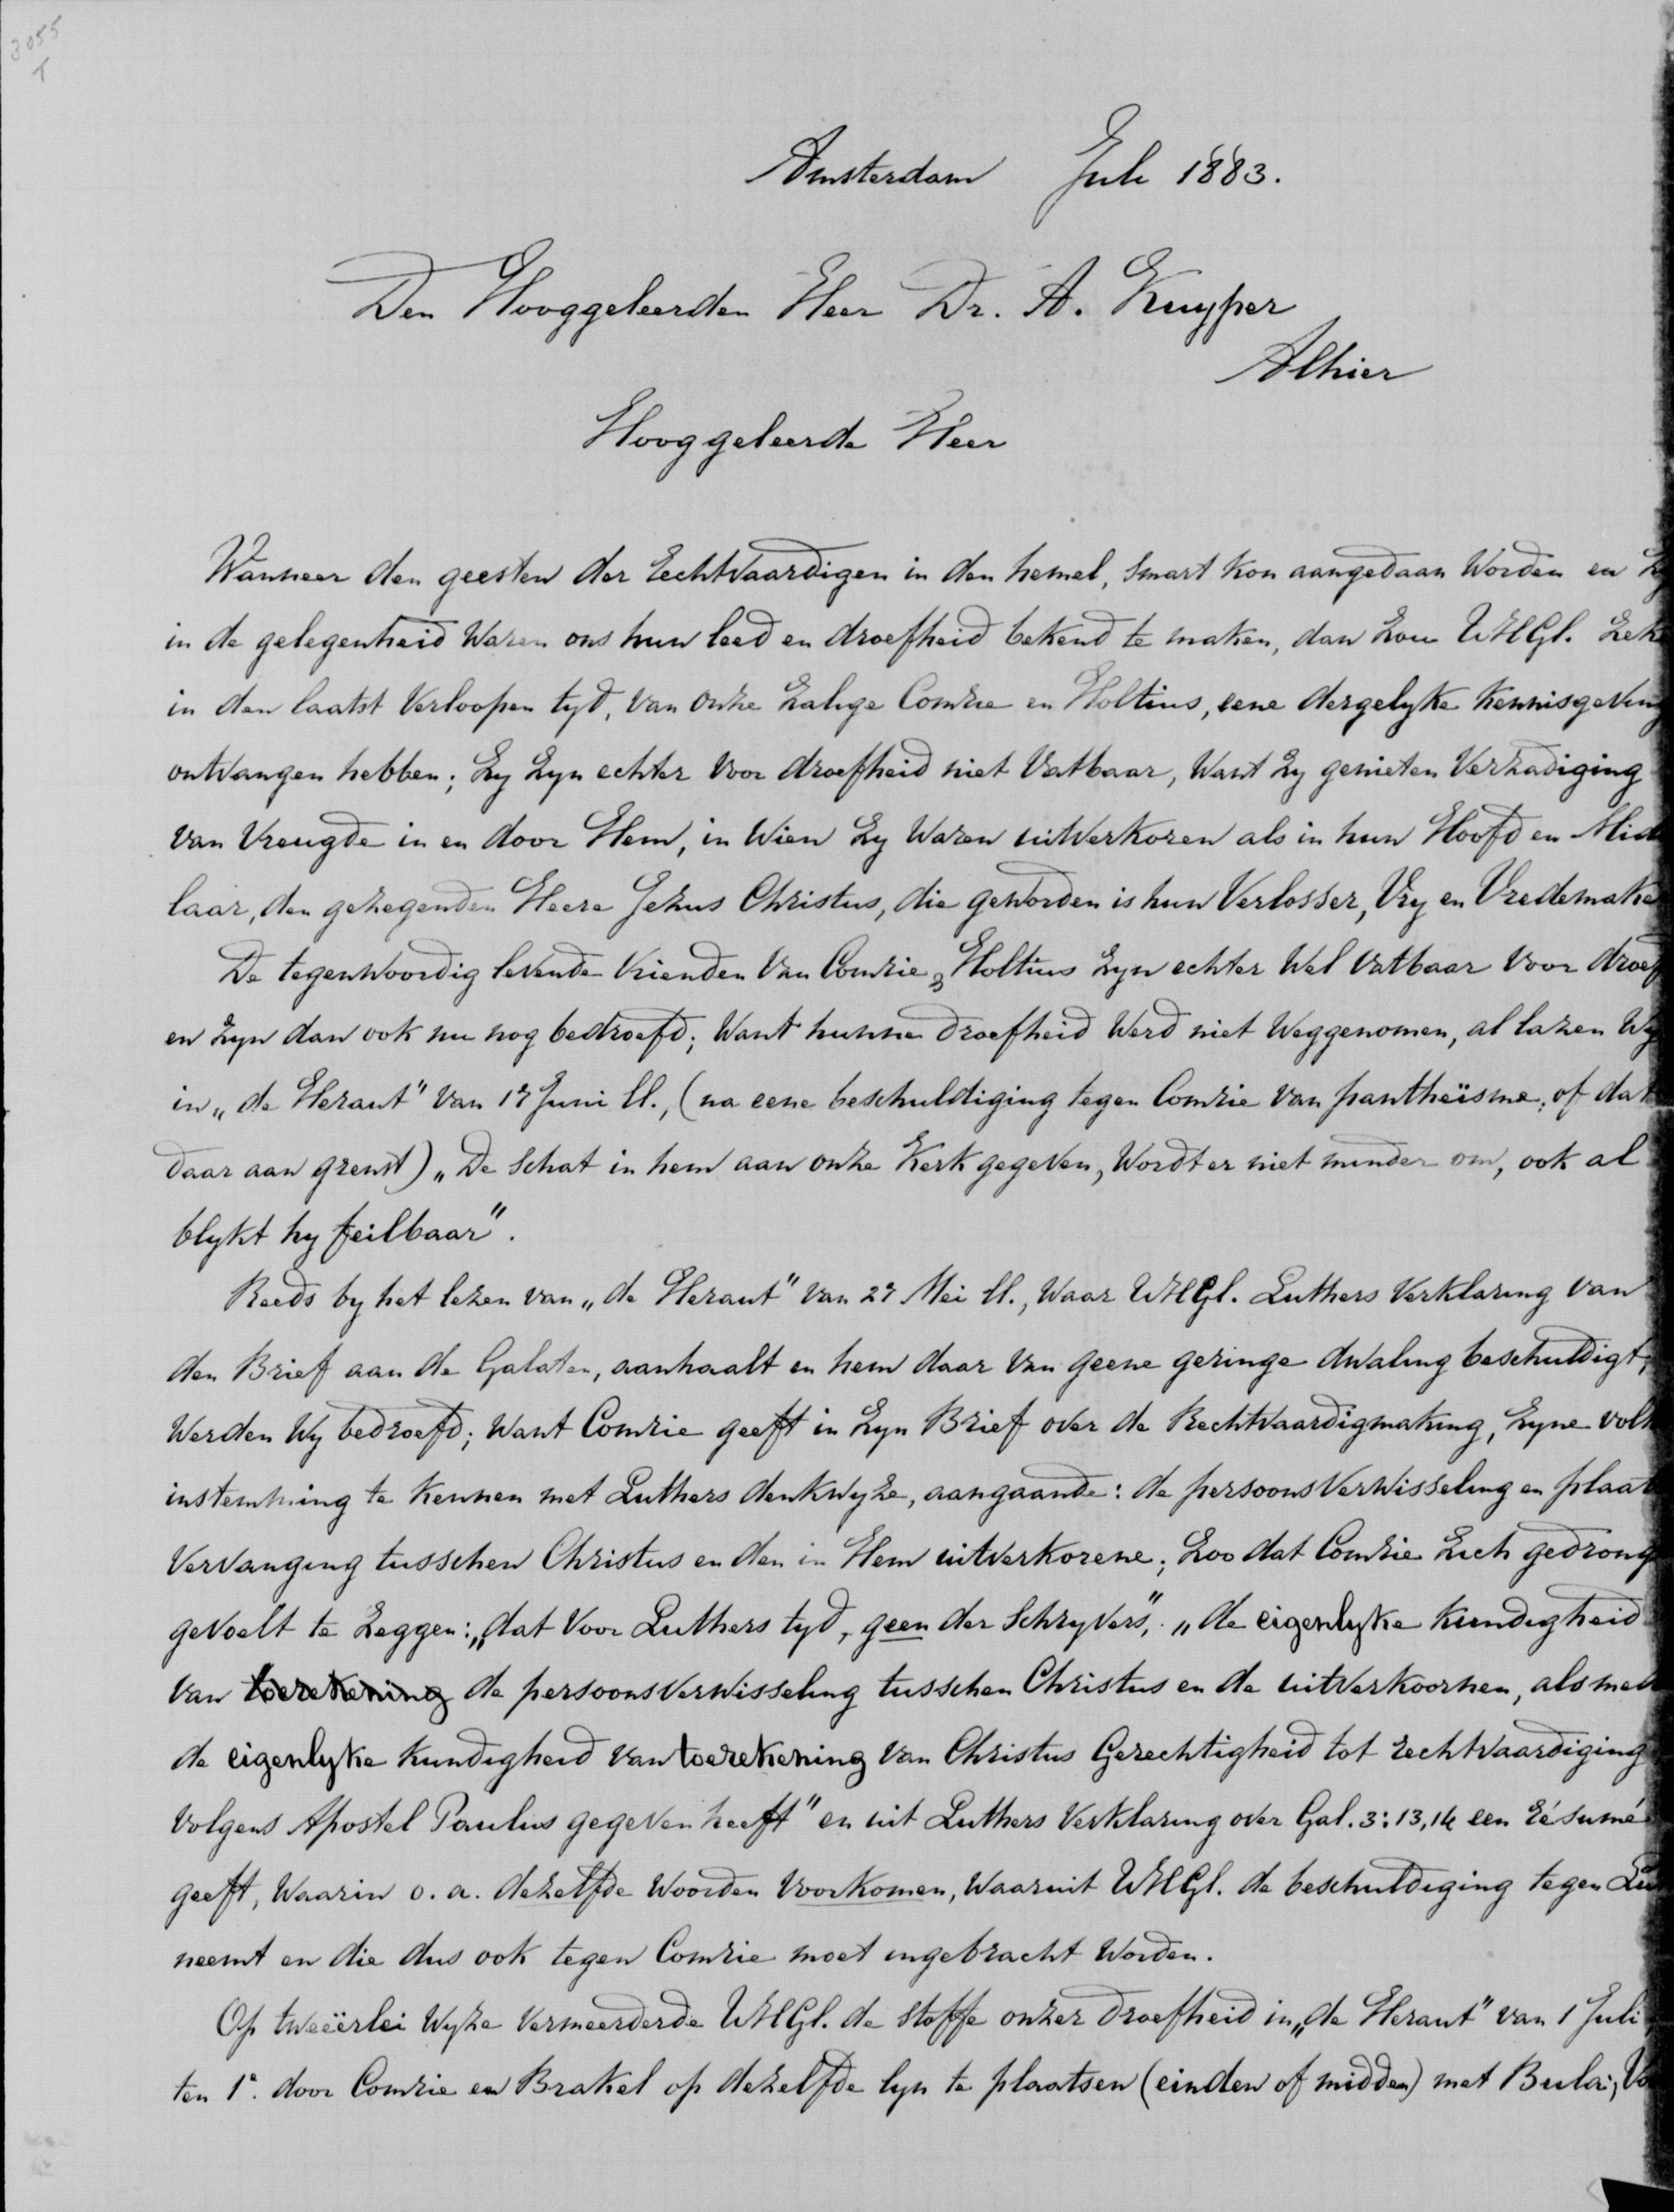 3055
T
Amsterdam Juli 1883.
Den Hooggeleerden Heer Dr. A. Kuyper
Alhier
Hooggeleerde Heer
Wanneer den geesten der rechtvaardigen in den hemel, smart kon aangedaan worden en zy
in de gelegenheid waren ons hun leed en droefheid bekend te maken, dan zou UHGl. zek
in den laatst verloopen tyd, van onze zalige Comrie en Holtius, eene dergelyke kennisgeving
ontvangen hebben; zy zyn echter voor droefheid niet vatbaar, want zy genieten verzadiging
van vreugde in en door Hem, in Wien zy waren uitverkoren als in hun Hoofd en Mid
laar, den gezegenden Heere Jezus Christus, die geworden is hun Verlosser, Vry en Vredemake
De tegenwoordig levende vrienden van Comrie & Holtius zyn echter wel vatbaar voor droef
en zyn dan ook nu nog bedroefd; want hunne droefheid werd niet weggenomen, al lazen wy
in „de Heraut" van 17 Juni ll., (na eene beschuldiging tegen Comrie van pantheïsme, of dat
daar aan grenst) „De schat in hem aan onze Kerk gegeven, wordt er niet minder om, ook al
blykt hy feilbaar".
Reeds by het lezen van „de Heraut" van 27 Mei ll., waar UHGl. Luthers verklaring van
den Brief aan de Galaten, aanhaalt en hem daar van geene geringe dwaling beschuldigt,
werden wy bedroefd; want Comrie geeft in zyn Brief over de Rechtvaardigmaking, zyne volk
instemming te kennen met Luthers denkwyze, aangaande: de persoonsverwisseling en plaat
vervanging tusschen Christus en den in Hem uitverkorene; zoo dat Comrie zich gedrong
gevoelt te zeggen: „dat voor Luthers tyd, geen der schryvers", „de eigenlyke kundigheid
van toerekening de persoonsverwisseling tusschen Christus en de uitverkoornen, alsmed
de eigenlyke kundigheid van toerekening van Christus Gerechtigheid tot rechtvaardiging
volgens Apostel Paulus gegeven heeft" en uit Luthers verklaring over Gal. 3:13,14 een résumé
geeft, waarin o. a. dezelfde woorden voorkomen, waaruit UHGl. de beschuldiging tegen Lu
neemt en die dus ook tegen Comrie moet ingebracht worden.
Op tweeërlei wyze vermeerderde UHGl. de stoffe onzer droefheid in „de Heraut" van 1 Juli
ten 1e. door Comrie en Brakel op dezelfde lyn te plaatsen (einden of midden) met